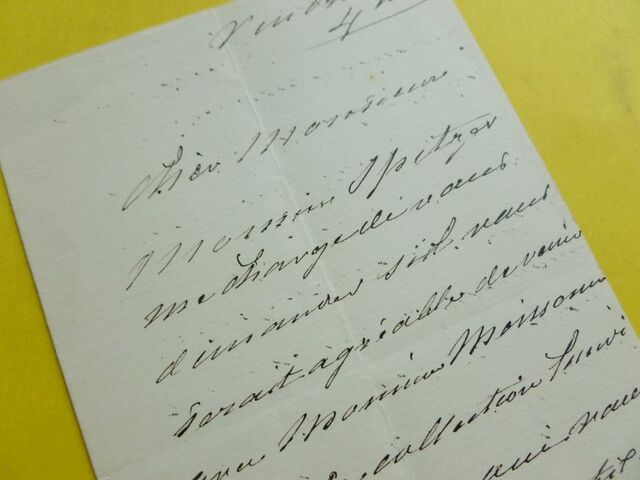 Cher Monsieur
Monsieur Spitzer
me charge de vous
dimander s'il vous
serait agréable de venir
avec Monsieur Meissonn
collection
qui vous